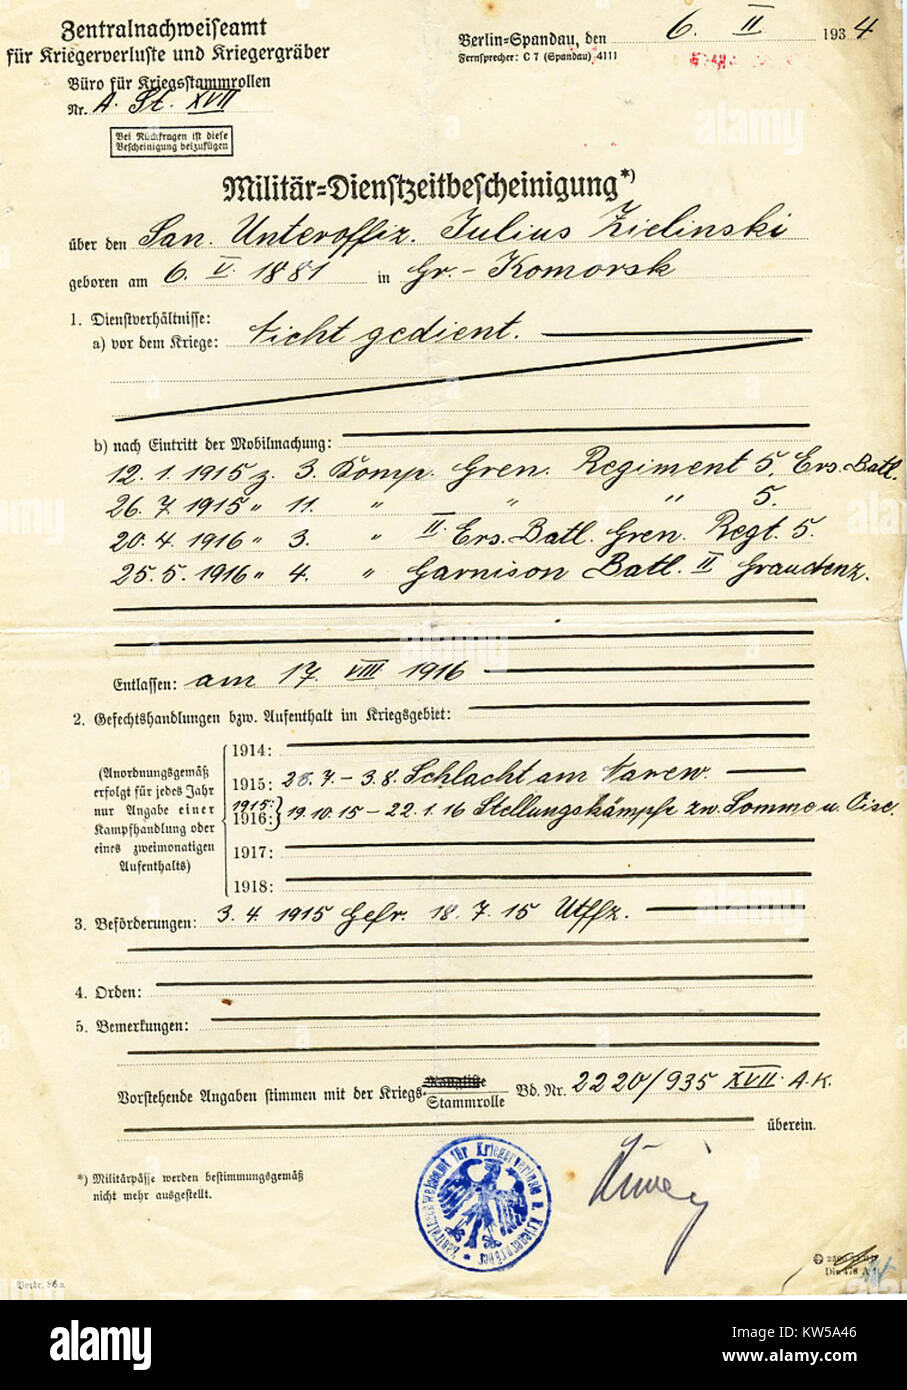 Zentralnachweiseamt
für Kriegerverluste und Kriegergräber
Büro für Kriegsstammrollen
Nr. A. St. XVII
Bei Rückfragen ist diese
Bescheinigung beizufügen
Berlin-Spandau, den 6. II 1934
Fernsprecher: C 7 (Spandau) 4111
Militär-Dienstzeitbescheinigung*)
über den San. Unteroffiz. Julius Zielinski
geboren am 6. V. 1881 in Gr.-Komorsk
1. Dienstverhältnisse:
a) vor dem Kriege: Nicht gedient.
b) nach Eintritt der Mobilmachung:
12. 1. 1915 z. 3. Komp. Gren. Regiment 5, Ers. Batl.
26. 7. 1915 " 11. " " " 5.
20. 4. 1916 " 3. " II. Ers. Batl. Gren. Regt. 5.
25. 5. 1916 " 4. " Garnison Batl. II Graudenz.
Entlassen: am 17. VIII 1916
2. Gefechtshandlungen bzw. Aufenthalt im Kriegsgebiet:
(Anordnungsgemäß
erfolgt für jedes Jahr
nur Angabe einer
Kampfhandlung oder
eines zweimonatigen
Aufenthalts)
1914:
1915: 23. 7. – 3. 8. Schlacht am Narew.
1915:
1916: 19. 10. 15 – 22. 1. 16 Stellungskämpfe zw. Somme u. Oise.
1917:
1918:
3. Beförderungen: 3. 4. 1915 Gefr. 18. 7. 15 Utffz.
4. Orden:
5. Bemerkungen:
Vorstehende Angaben stimmen mit der Kriegs-Rangliste
Stammrolle Bd. Nr. 2220/935 XVII. A.K.
überein.
*) Militärpässe werden bestimmungsgemäß
nicht mehr ausgestellt.
Zentralnachweiseamt für Kriegerverluste u. Kriegergräber *
Din 476 A 4
Vordr. 86a
alamy
KW5A46